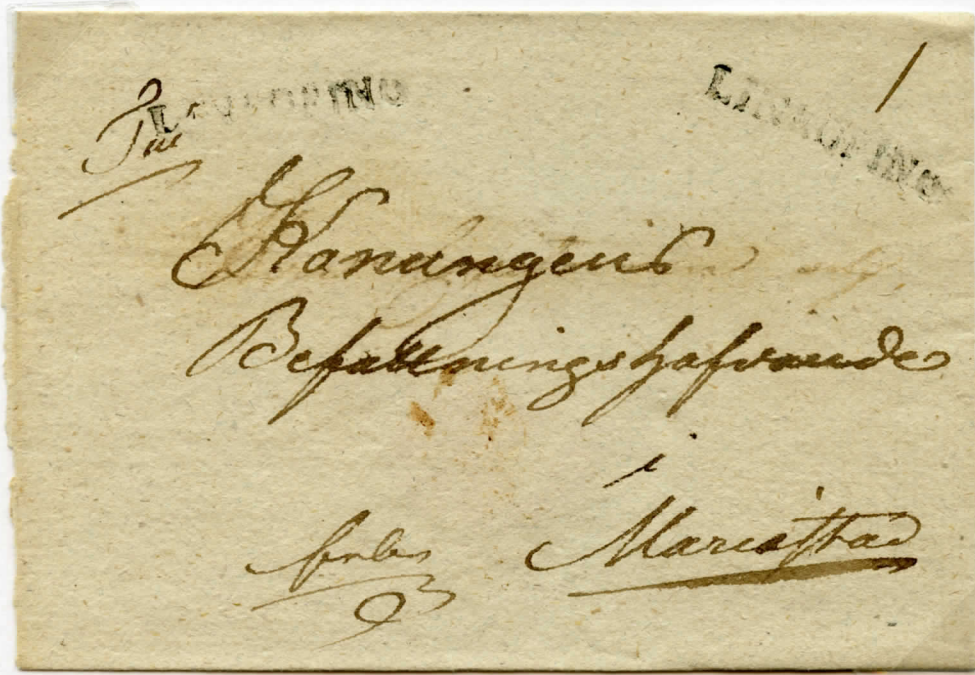 LINKÖPING LINKÖPING
Till
Konungens
Befallningshafvande
i
Mariæstad